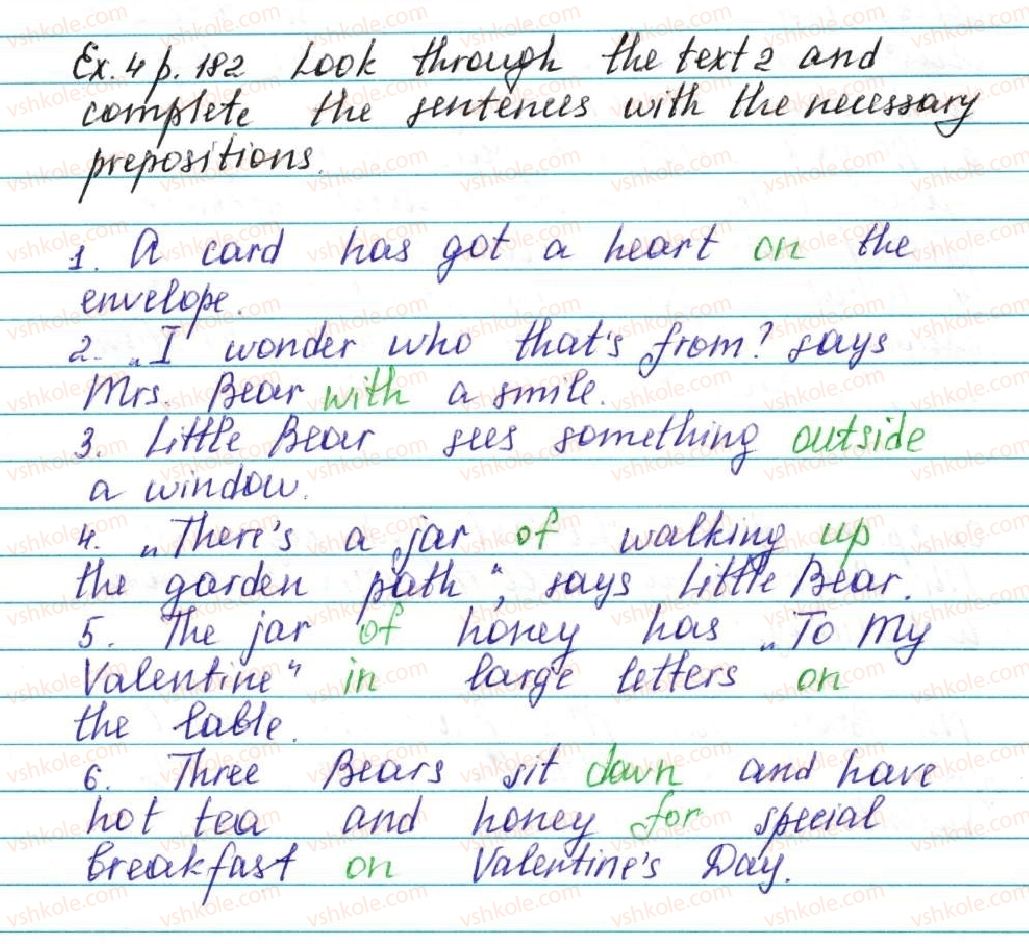 Ex. 4 p. 182 Look through the text 2 and
complete the sentences with the necessary
prepositions.
1. A card has got a heart on the
envelope.
2. „I wonder who that's from? says
Mrs. Bear with a smile.
3. Little Bear sees something outside
a window.
4. „There's a jar of walking up
the garden path“, says Little Bear.
5. The jar of honey has „To My
Valentine“ in large letters on
the lable.
6. Three Bears sit down and have
hot tea and honey for special
breakfast on Valentine's Day.
vshkole.com